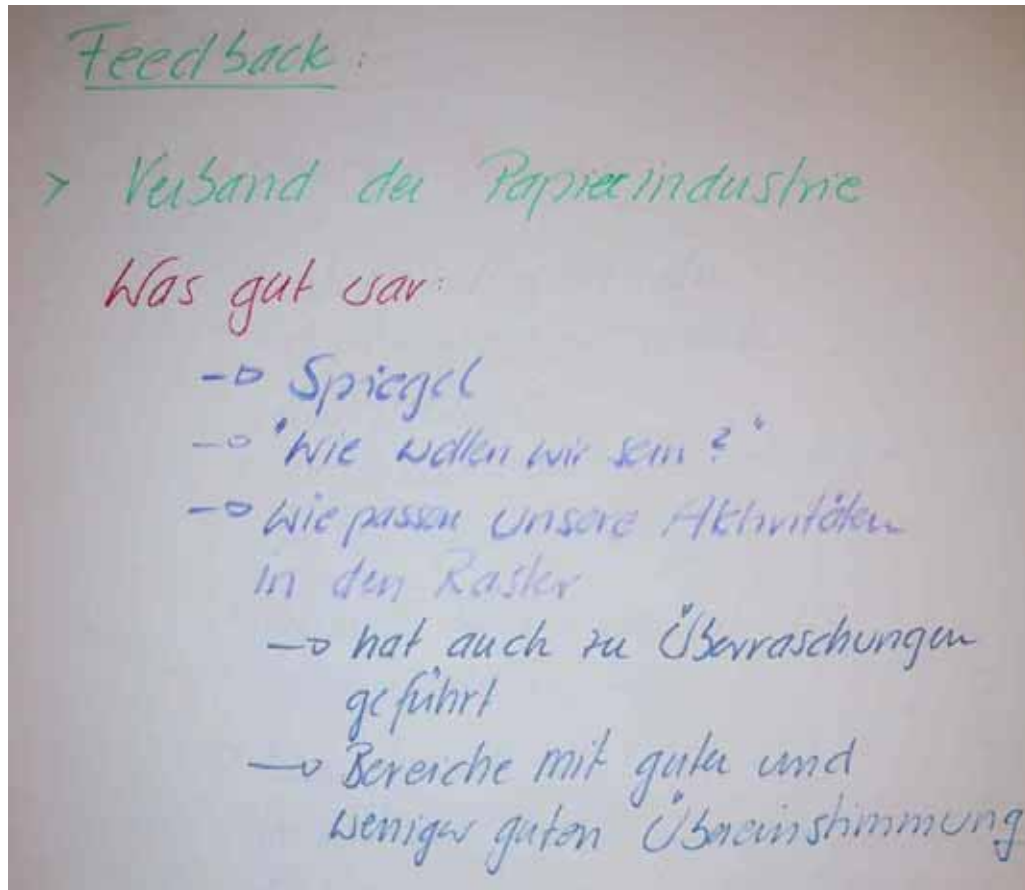 Feedback:
> Verband der Papierindustrie
Was gut war:
→ Spiegel
→ "Wie wollen wir sein?"
→ Wie passen unsere Aktivitäten
in den Raster
→ hat auch zu Überraschungen
geführt
→ Bereiche mit guter und
weniger guten Übereinstimmung